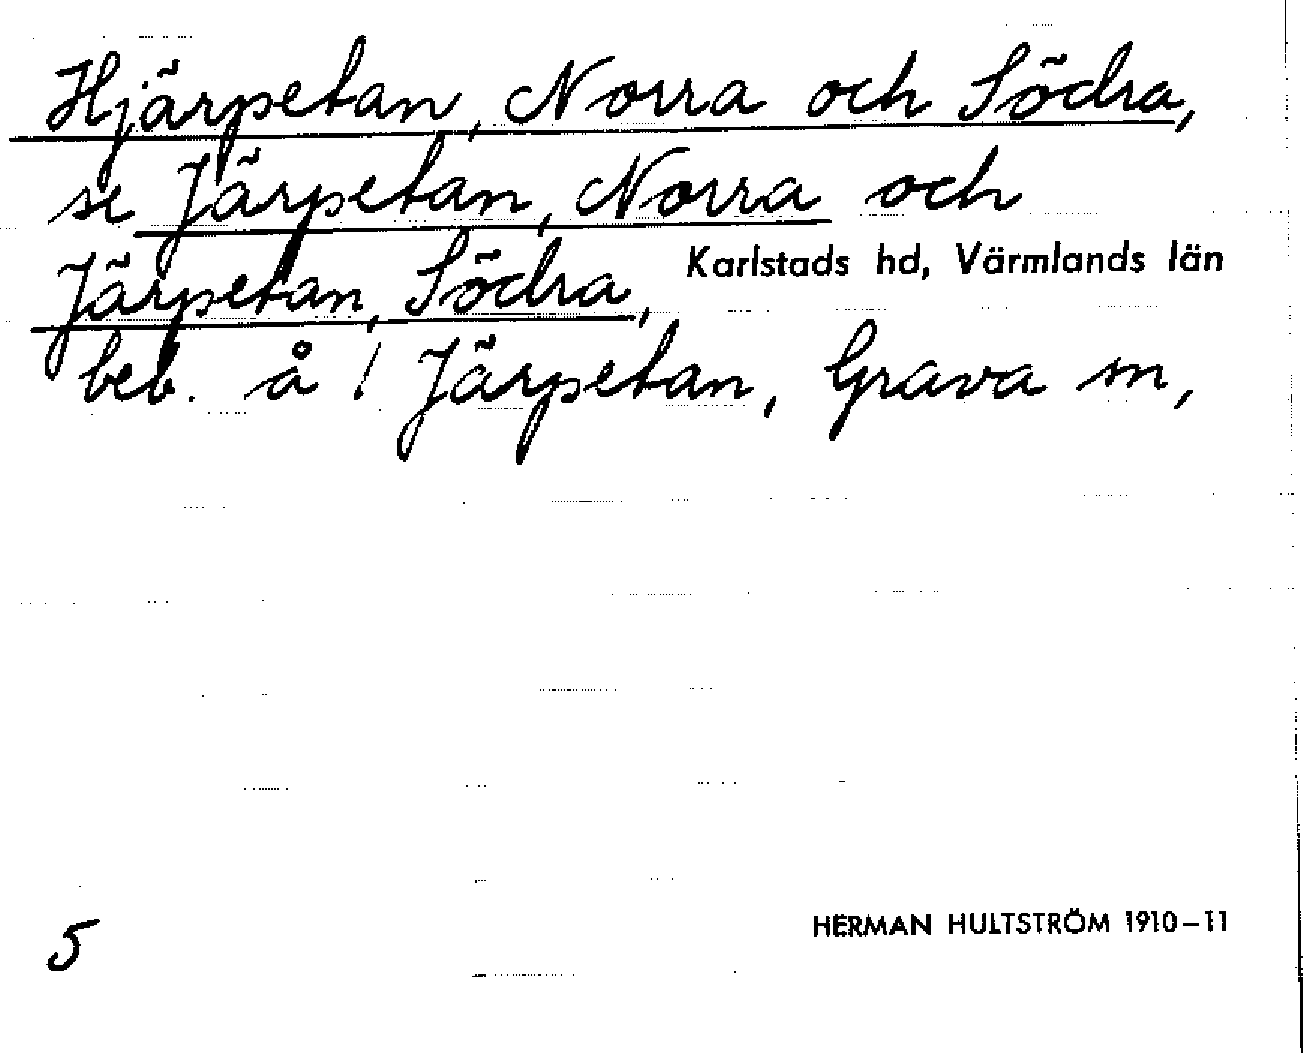 Hjärpetan, Norra och Södra,
se Järpetan, Norra och
Järpetan, Södra,
Karlstads hd, Värmlands län
beb. å / Järpetan, Grava sn,
5
HERMAN HULTSTRÖM 1910–11